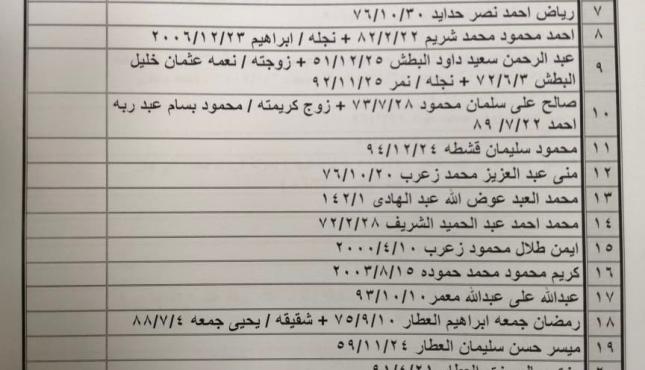 ٧ رياض احمد نصر حدايد ٧٦/١٠/٣٠
٨ احمد محمود محمد شريم ٨٢/٢/٢٢ + نجله / ابراهيم ٢٠٠٦/١٢/٢٣
٩ عبد الرحمن سعيد داود البطش ٥١/١٢/٢٥ + زوجته / نعمه عثمان خليل
البطش ٧٢/٦/٣ + نجله / نمر ٩٢/١١/٢٥
١٠ صالح على سلمان محمود ٧٣/٧/٢٨ + زوج كريمته / محمود بسام عبد ربه
احمد ٨٩ /٧/ ٢٢
١١ محمود سليمان قشطه ٩٤/١٢/٢٤
١٢ منى عبد العزيز محمد زعرب ٧٦/١٠/٢٠
١٣ محمد العبد عوض الله عبد الهادى ١٤٢/١
١٤ محمد احمد عبد الحميد الشريف ٧٢/٢/٢٨
١٥ ايمن طلال محمود زعرب ٢٠٠٠/٤/١٠
١٦ كريم محمود محمد حموده ٢٠٠٣/٨/١٥
١٧ عبدالله على عبدالله معمر ٩٣/١٠/١٠
١٨ رمضان جمعه ابراهيم العطار ٧٥/٩/١٠ + شقيقه / يحيى جمعه ٨٨/٧/٤
١٩ ميسر حسن سليمان العطار ٥٩/١١/٢٤